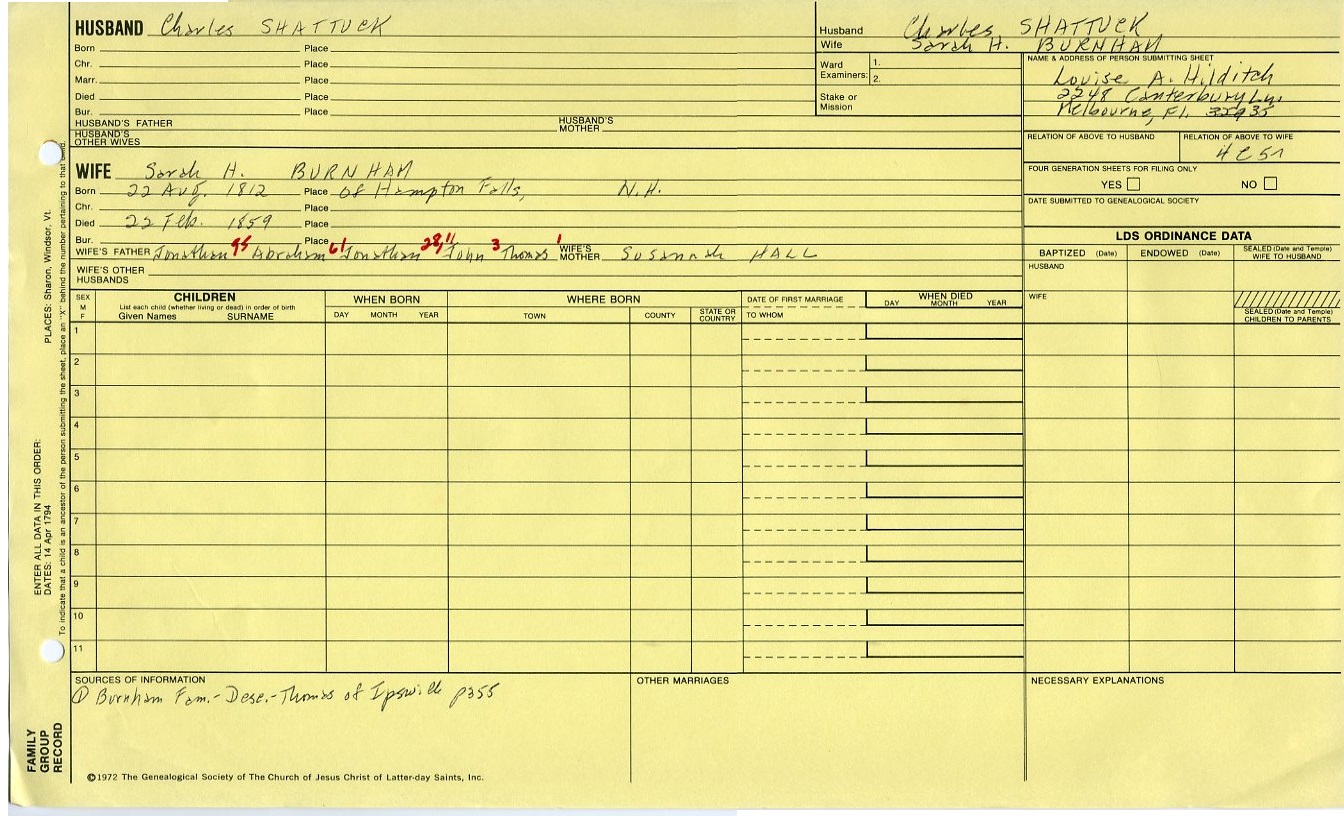 HUSBAND Charles SHATTUCK
Born Place
Chr. Place
Marr. Place
Died Place
Bur. Place
HUSBAND'S FATHER HUSBAND'S MOTHER
HUSBAND'S OTHER WIVES
Husband Charles SHATTUCK
Wife Sarah H. BURNHAM
Ward Examiners: 1.
2.
Stake or Mission
NAME & ADDRESS OF PERSON SUBMITTING SHEET
Louise A. Hilditch
2248 Canterbury Ln.
Melbourne, Fl. 32935
RELATION OF ABOVE TO HUSBAND RELATION OF ABOVE TO WIFE
4C5R
FOUR GENERATION SHEETS FOR FILING ONLY
YES NO
DATE SUBMITTED TO GENEALOGICAL SOCIETY
WIFE Sarah H. BURNHAM
Born 22 Aug. 1812 Place of Hampton Falls, N.H.
Chr. Place
Died 22 Feb. 1859 Place
Bur. Place
WIFE'S FATHER Jonathan 95 Abraham 61 Jonathan 28, 11 John 3 Thomas 1 WIFE'S MOTHER Susannah HALL
WIFE'S OTHER HUSBANDS
LDS ORDINANCE DATA
BAPTIZED (Date) ENDOWED (Date) SEALED (Date and Temple) WIFE TO HUSBAND
HUSBAND
WIFE
SEALED (Date and Temple) CHILDREN TO PARENTS
SEX M F
CHILDREN
List each child (whether living or dead) in order of birth
Given Names SURNAME
WHEN BORN
DAY MONTH YEAR
WHERE BORN
TOWN COUNTY STATE OR COUNTRY
DATE OF FIRST MARRIAGE
TO WHOM
WHEN DIED
DAY MONTH YEAR
1
2
3
4
5
6
7
8
9
10
11
SOURCES OF INFORMATION
① Burnham Fam.- Desc.- Thomas of Ipswich p355
OTHER MARRIAGES
NECESSARY EXPLANATIONS
©1972 The Genealogical Society of The Church of Jesus Christ of Latter-day Saints, Inc.
FAMILY GROUP RECORD
ENTER ALL DATA IN THIS ORDER:
DATES: 14 Apr 1794
PLACES: Sharon, Windsor, Vt.
To indicate that a child is an ancestor of the person submitting the sheet, place an "X" behind the number pertaining to that child.